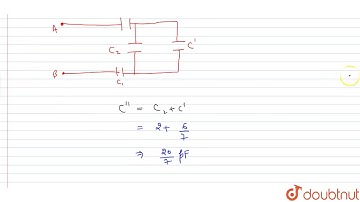 A
C₂
C'
B
C₁
C" = C₂ + C'
= 2 + 6/7
⇒ 20/7 μF
doubtnut